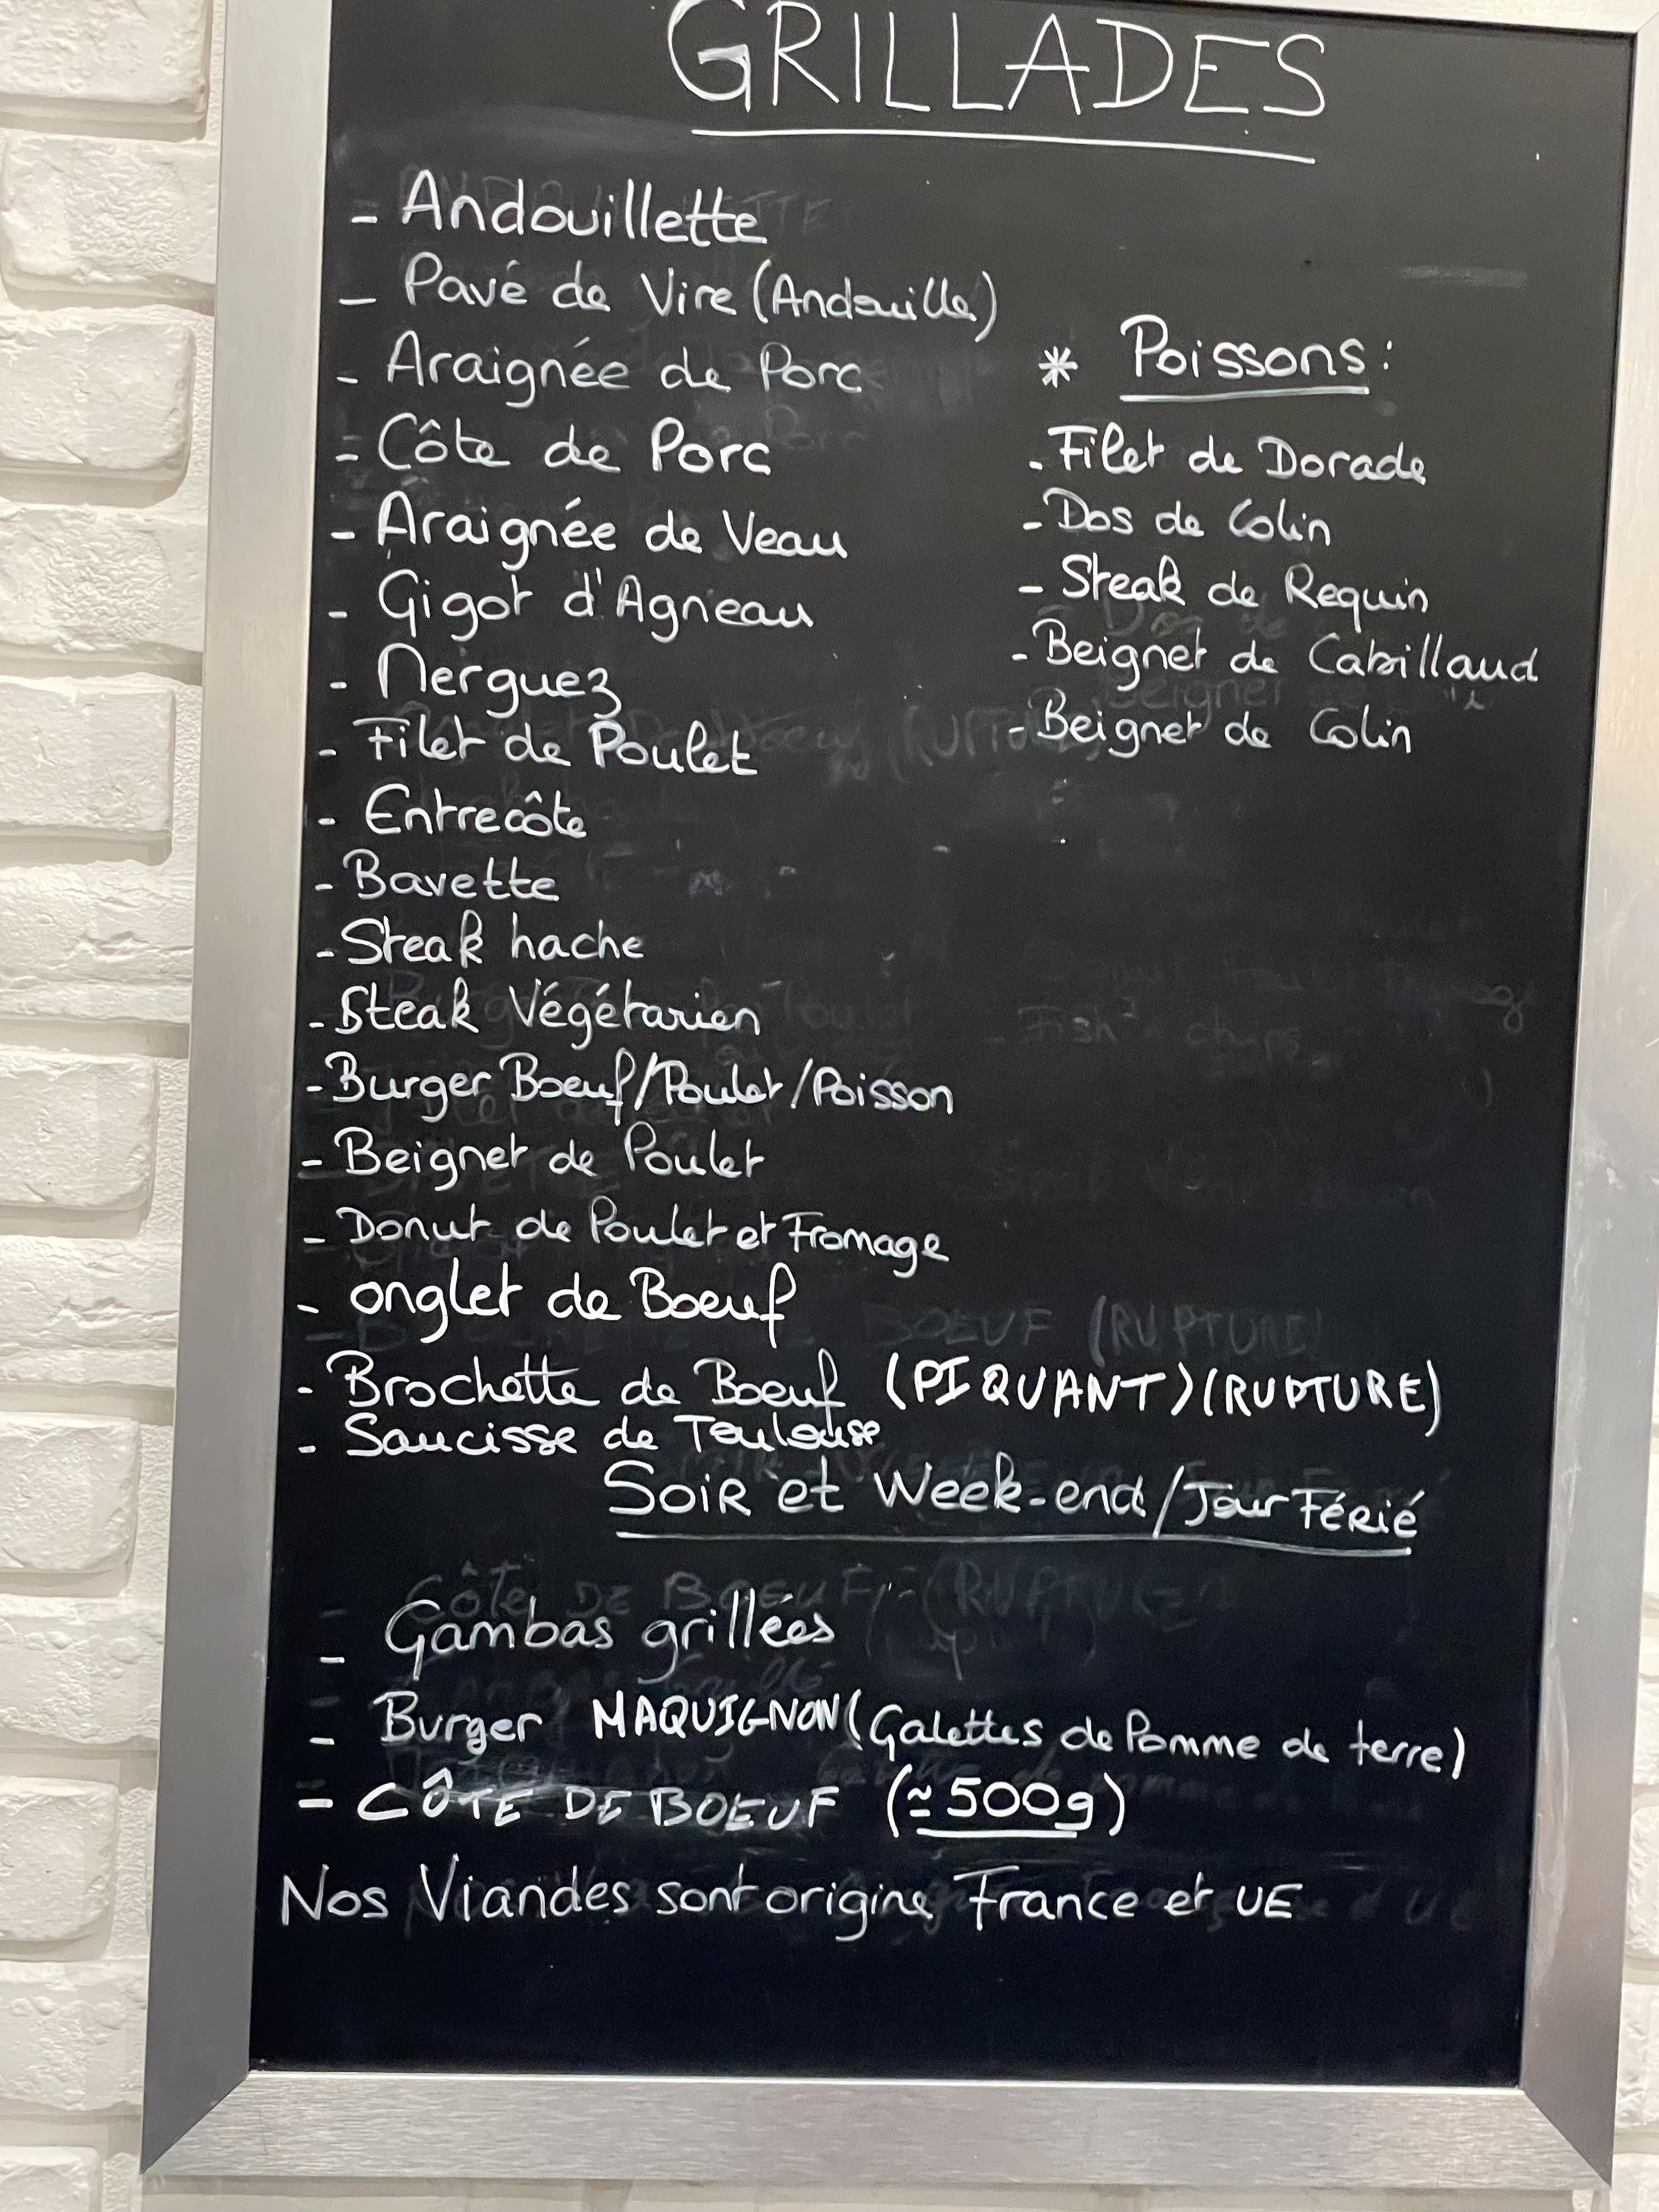 GRILLADES
- Andouillette
- Pavé de Vire (Andouille)
- Araignée de Porc
- Côte de Porc
- Araignée de Veau
- Gigot d'Agneau
- Merguez
- Filet de Poulet
- Entrecôte
- Bavette
- Steak hache
- Steak Végétarien
- Burger Boeuf/Poulet/Poisson
- Beignet de Poulet
- Donut de Poulet et Fromage
- onglet de Boeuf
- Brochette de Boeuf (PIQUANT) (RUPTURE)
- Saucisse de Toulouse
* Poissons:
- Filet de Dorade
- Dos de Colin
- Steak de Requin
- Beignet de Cabillaud
- Beignet de Colin
Soir et Week-end/Jour Férié
- Gambas grillées
- Burger MAQUIGNON (Galettes de Pomme de terre)
= CÔTE DE BOEUF (≃500g)
Nos Viandes sont origine France et UE